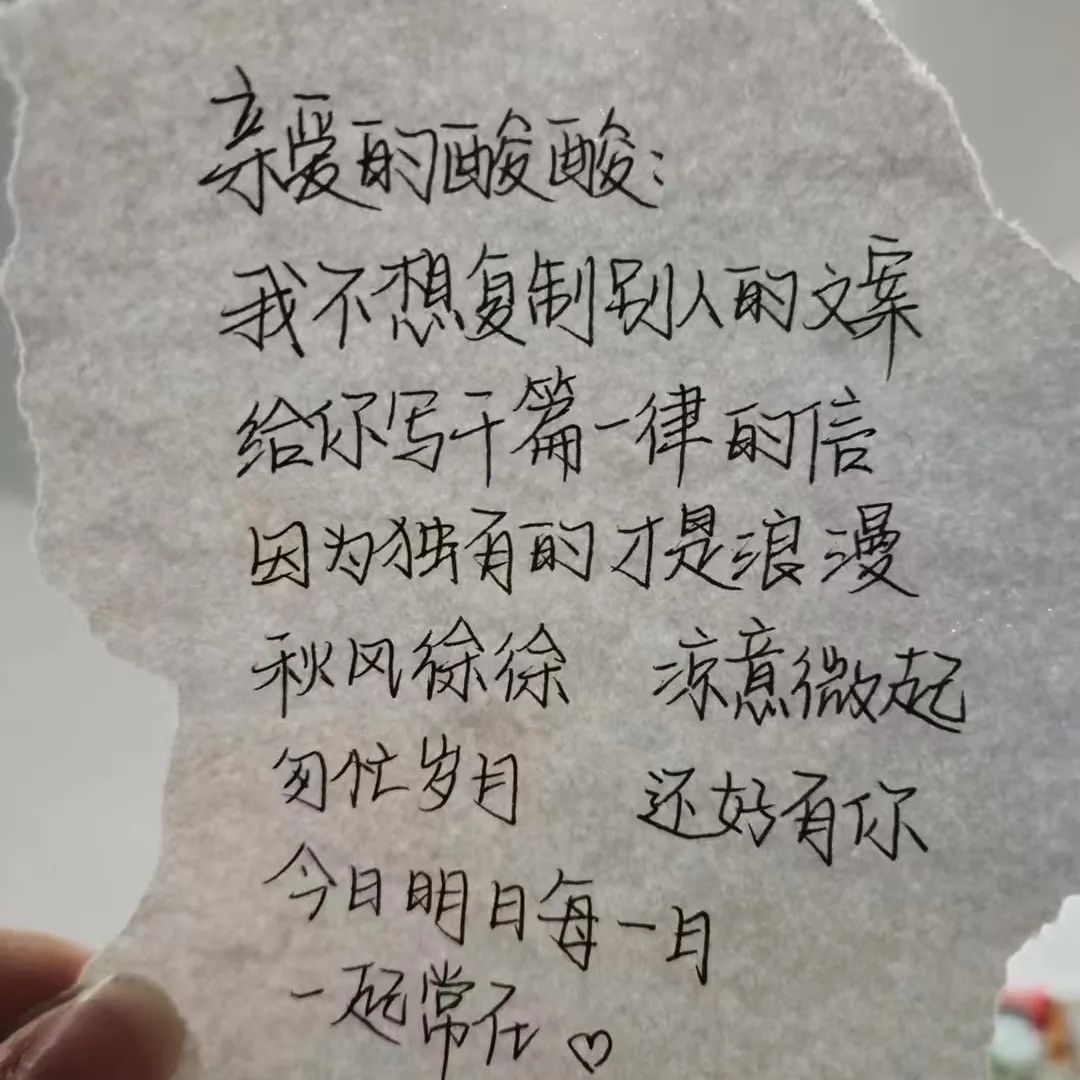 亲爱的酸酸:
我不想复制别人的文案
给你写千篇一律的信
因为独有的才是浪漫
秋风徐徐 凉意微起
匆忙岁月 还好有你
今日明日每一日
一起常在♡